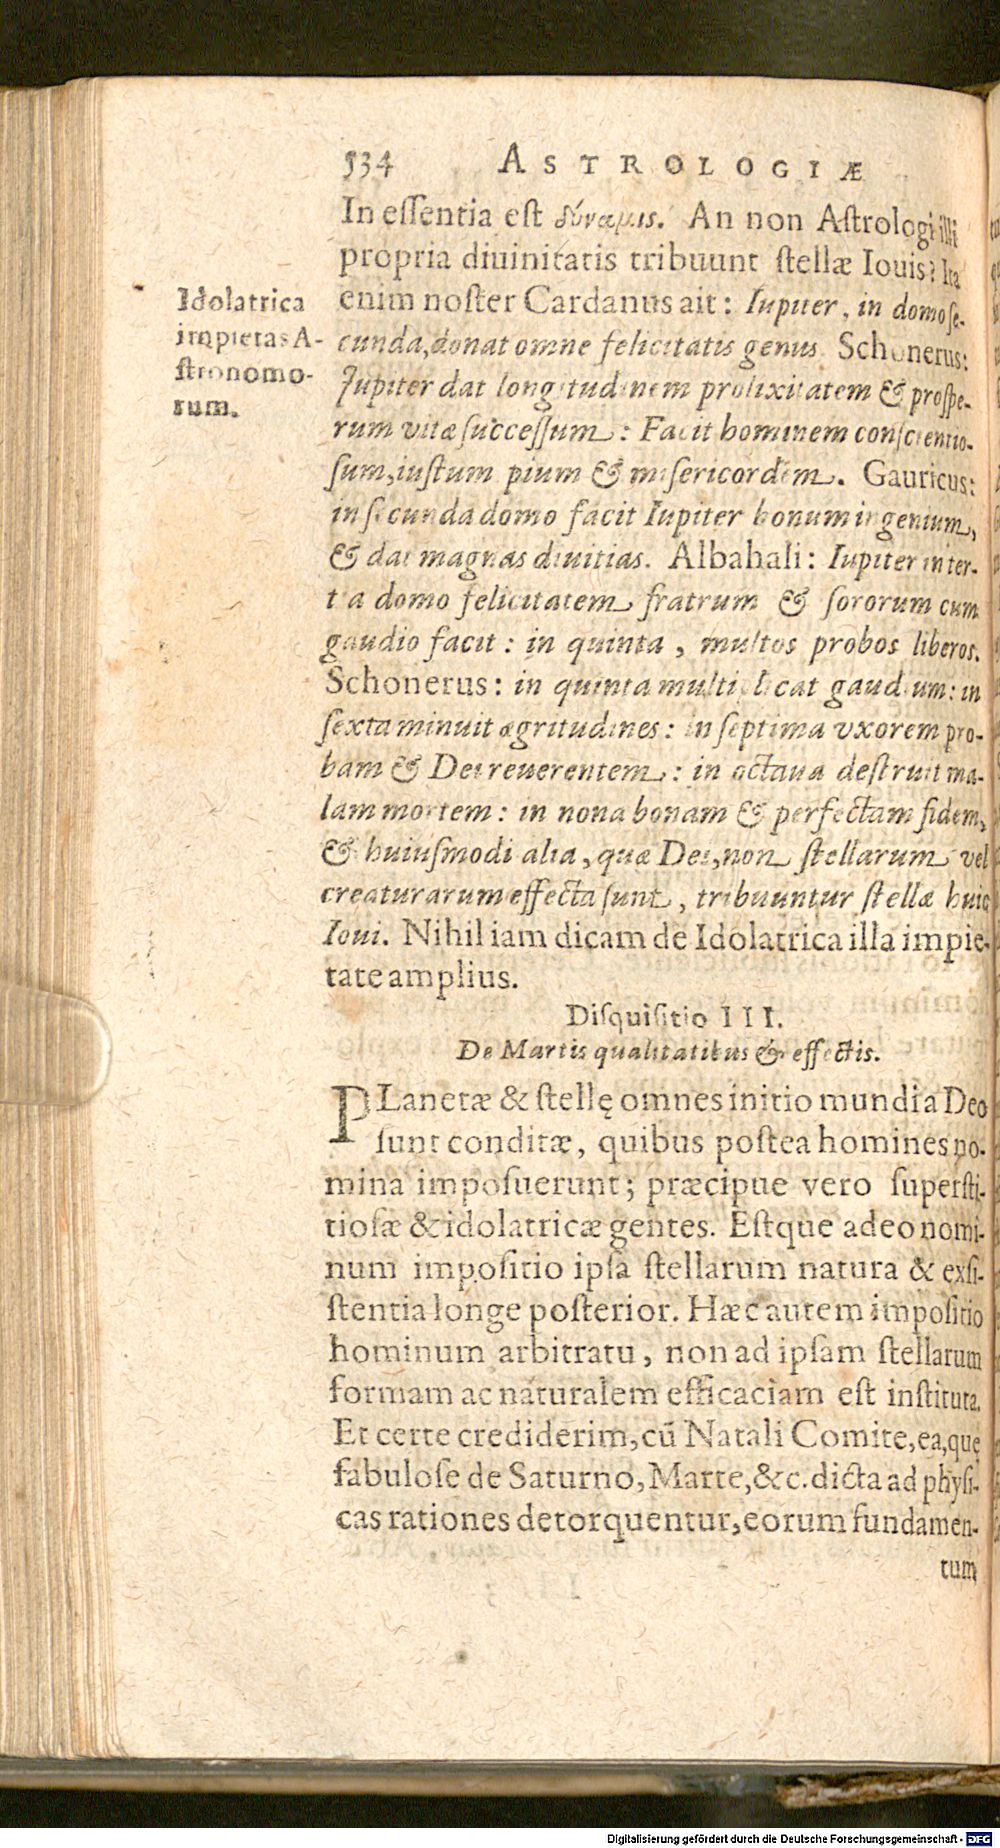 534 ASTROLOGIÆ
In eſſentia eſt δύναμις. An non Aſtrologi illi
propria diuinitatis tribuunt ſtellæ Iouis? Ita
enim noſter Cardanus ait: Iupiter, in domo ſe-
cunda, donat omne felicitatis genus. Schonerus:
Jupiter dat longitudinem prolixitatem & proſpe-
rum vitæ ſucceſſum: Facit hominem conſcientio-
ſum, iuſtum pium & miſericordem. Gauricus:
in ſecunda domo facit Iupiter bonum ingenium,
& dat magnas diuitias. Albahali: Iupiter in ter-
tia domo felicitatem fratrum & ſororum cum
gaudio facit: in quinta, multos probos liberos.
Schonerus: in quinta multiplicat gaudium: in
ſexta minuit ægritudines: in ſeptima vxorem pro-
bam & Dei reuerentem: in octaua deſtruit ma-
lam mortem: in nona bonam & perfectam fidem,
& huiuſmodi alia, quæ Dei, non ſtellarum vel
creaturarum effecta ſunt, tribuuntur ſtellæ huic
Ioui. Nihil iam dicam de Idolatrica illa impie-
tate amplius.
Idolatrica
impietas A-
ſtronomo-
rum.
Diſquiſitio III.
De Martis qualitatibus & effectis.
PLanetæ & ſtellę omnes initio mundi a Deo
ſunt conditæ, quibus poſtea homines no-
mina impoſuerunt; præcipue vero ſuperſti-
tioſæ & idolatricæ gentes. Eſtque adeo nomi-
num impoſitio ipſa ſtellarum natura & exſi-
ſtentia longe poſterior. Hæc autem impoſitio
hominum arbitratu, non ad ipſam ſtellarum
formam ac naturalem efficaciam eſt inſtituta.
Et certe crediderim, cū Natali Comite, ea, quę
fabuloſe de Saturno, Marte, &c. dicta ad phyſi-
cas rationes detorquentur, eorum fundamen-
tum
Digitalisierung gefördert durch die Deutsche Forschungsgemeinschaft - DFG